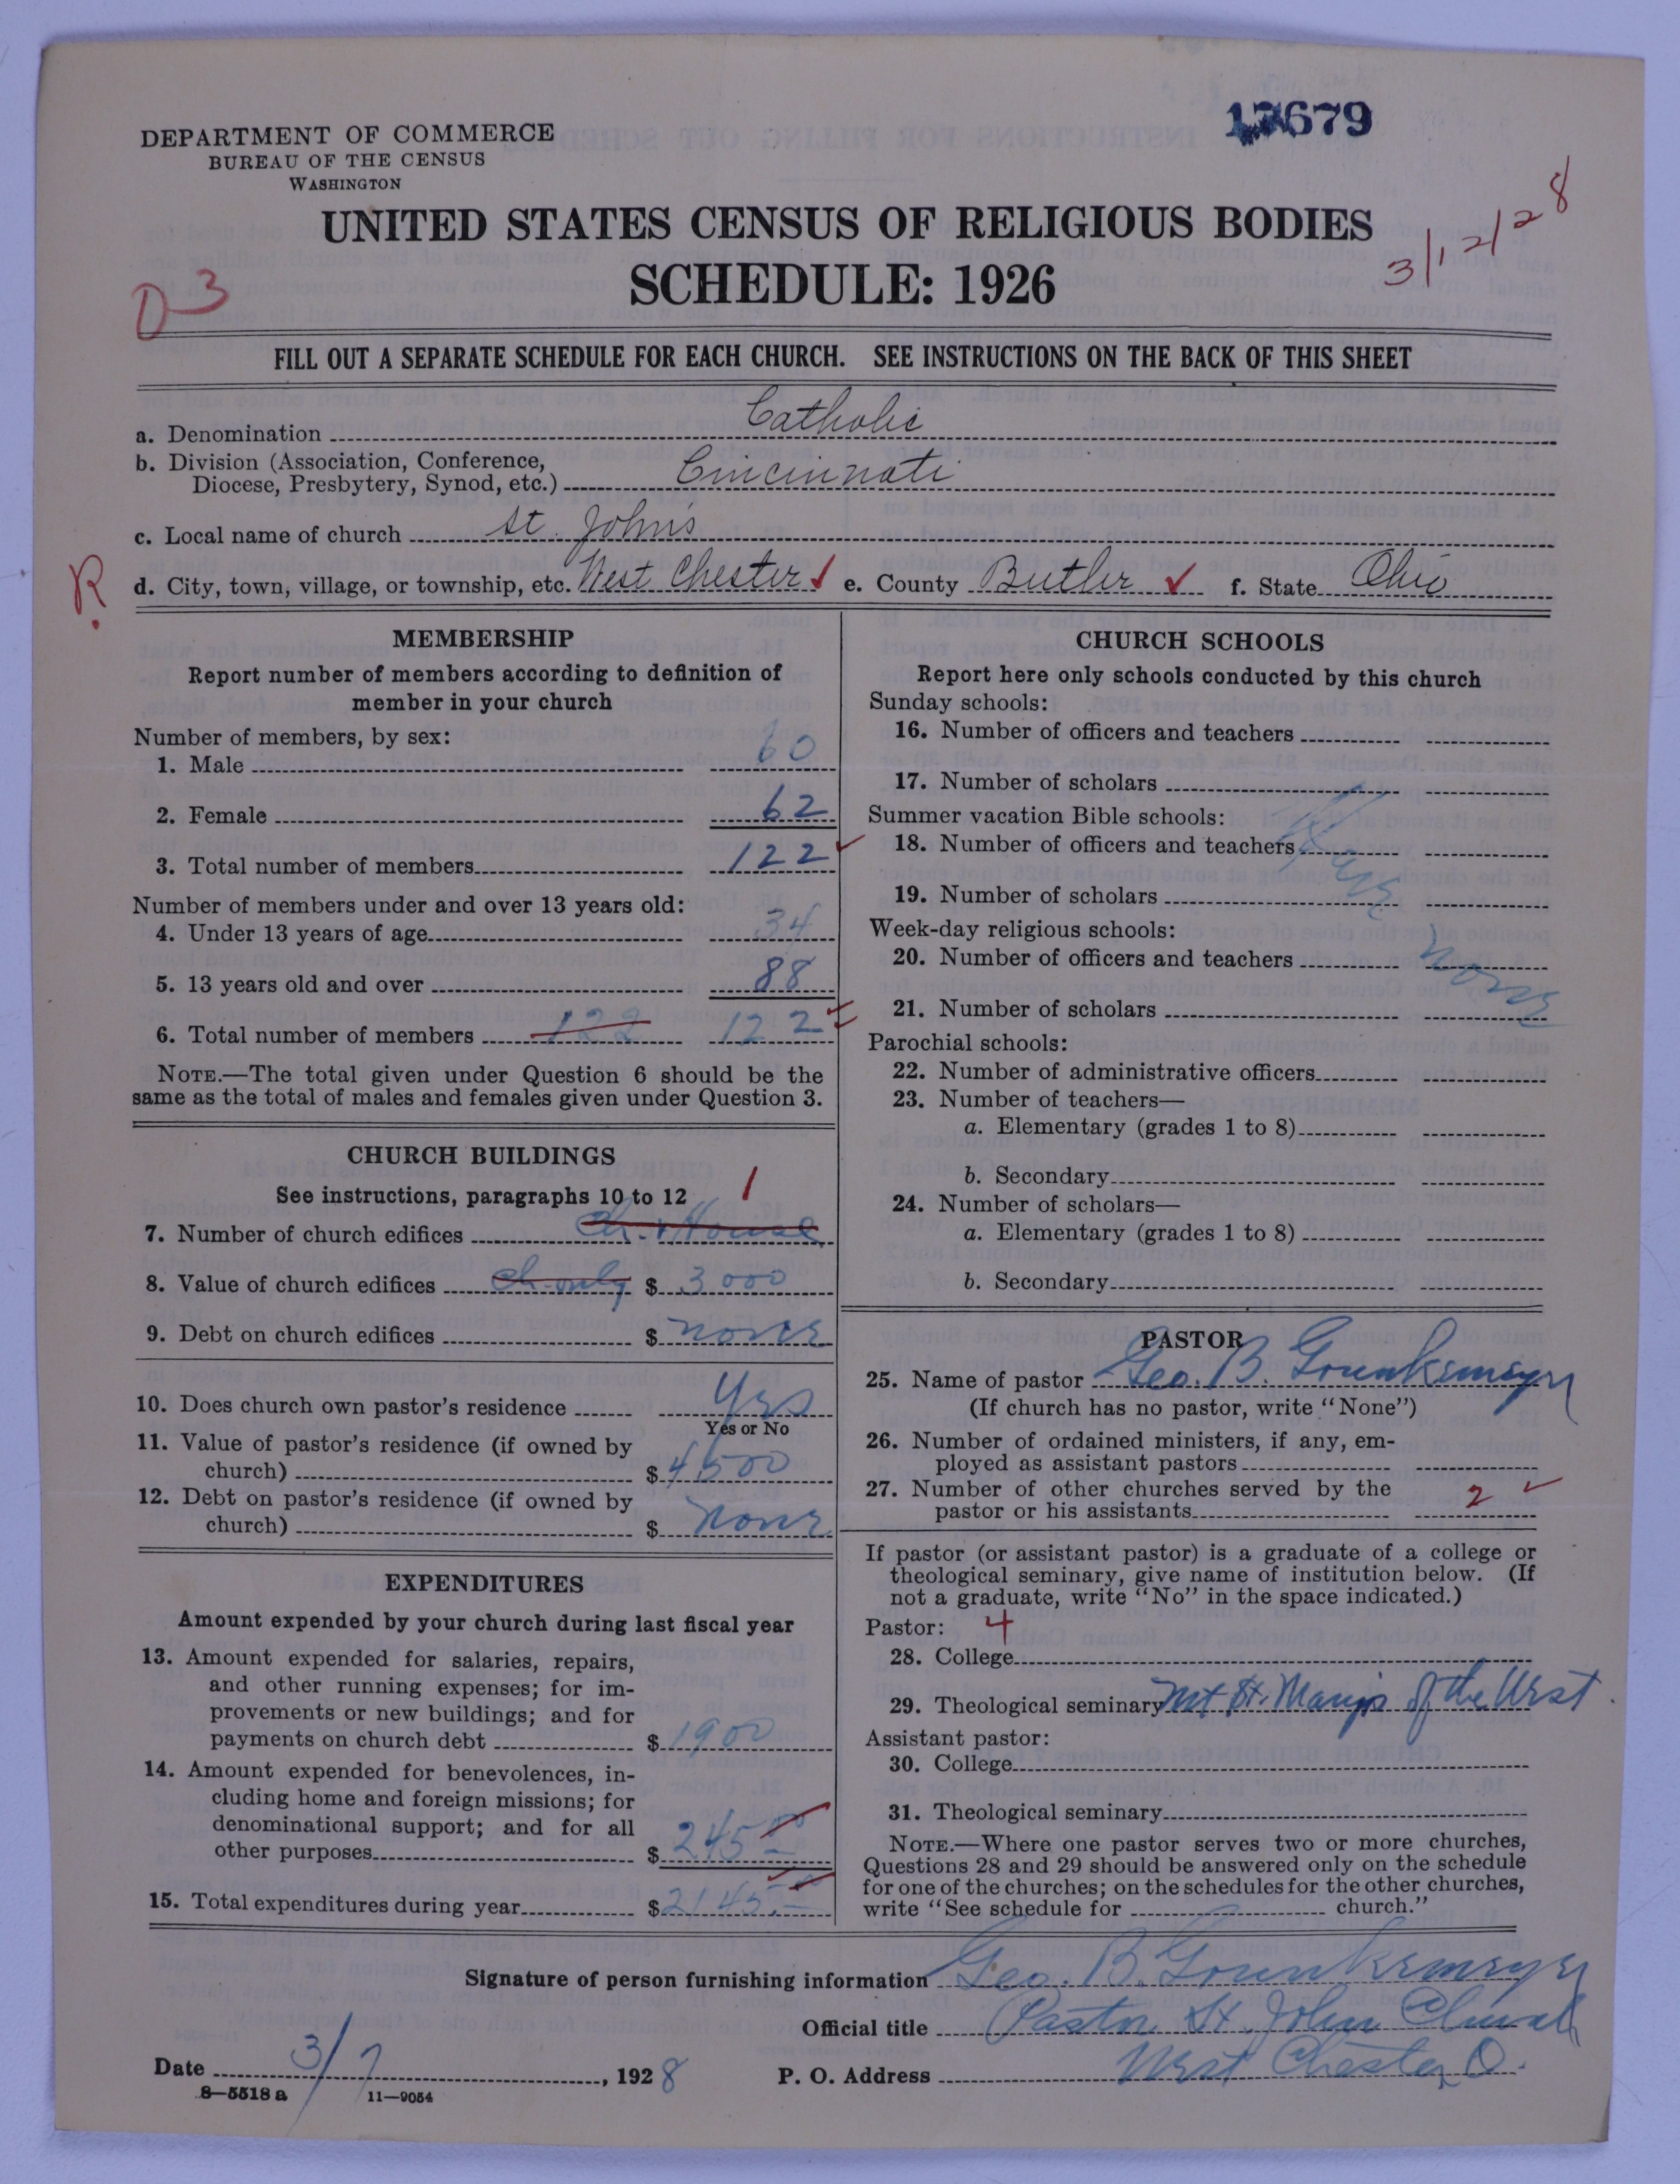 17679
DEPARTMENT OF COMMERCE
BUREAU OF THE CENSUS
WASHINGTON
UNITED STATES CENSUS OF RELIGIOUS BODIES
SCHEDULE: 1926
3/12/28
D 3
FILL OUT A SEPARATE SCHEDULE FOR EACH CHURCH. SEE INSTRUCTIONS ON THE BACK OF THIS SHEET
a. Denomination Catholic
b. Division (Association, Conference,
Diocese, Presbytery, Synod, etc.) Cincinnati
c. Local name of church St. John's
R. d. City, town, village, or township, etc. West Chester ✓ e. County Butler ✓ f. State Ohio
MEMBERSHIP
Report number of members according to definition of
member in your church
Number of members, by sex:
1. Male 60
2. Female 62
3. Total number of members 122 ✓
Number of members under and over 13 years old:
4. Under 13 years of age 34
5. 13 years old and over 88
6. Total number of members 122 122
NOTE.—The total given under Question 6 should be the
same as the total of males and females given under Question 3.
CHURCH BUILDINGS
See instructions, paragraphs 10 to 12 1
7. Number of church edifices Ch. + House
8. Value of church edifices Ch only $ 3000
9. Debt on church edifices $ none
10. Does church own pastor's residence Yes
Yes or No
11. Value of pastor's residence (if owned by
church) $ 4500
12. Debt on pastor's residence (if owned by
church) $ none
EXPENDITURES
Amount expended by your church during last fiscal year
13. Amount expended for salaries, repairs,
and other running expenses; for im-
provements or new buildings; and for
payments on church debt $ 1900
14. Amount expended for benevolences, in-
cluding home and foreign missions; for
denominational support; and for all
other purposes $ 245
15. Total expenditures during year $ 2145
CHURCH SCHOOLS
Report here only schools conducted by this church
Sunday schools:
16. Number of officers and teachers
17. Number of scholars
Summer vacation Bible schools:
18. Number of officers and teachers
19. Number of scholars
Week-day religious schools:
20. Number of officers and teachers none
21. Number of scholars
Parochial schools:
22. Number of administrative officers
23. Number of teachers—
a. Elementary (grades 1 to 8)
b. Secondary
24. Number of scholars—
a. Elementary (grades 1 to 8)
b. Secondary
PASTOR
25. Name of pastor Geo. B. Grunkemeyer
(If church has no pastor, write "None")
26. Number of ordained ministers, if any, em-
ployed as assistant pastors
27. Number of other churches served by the
pastor or his assistants 2 ✓
If pastor (or assistant pastor) is a graduate of a college or
theological seminary, give name of institution below. (If
not a graduate, write "No" in the space indicated.)
Pastor: 4
28. College
29. Theological seminary Mt. St. Mary's of the West
Assistant pastor:
30. College
31. Theological seminary
NOTE.—Where one pastor serves two or more churches,
Questions 28 and 29 should be answered only on the schedule
for one of the churches; on the schedules for the other churches,
write "See schedule for church."
Signature of person furnishing information Geo. B. Grunkemeyer
Official title Pastor St. John Church
Date 3/7, 1928 P. O. Address West Chester, O.
8—5518 a 11—9054